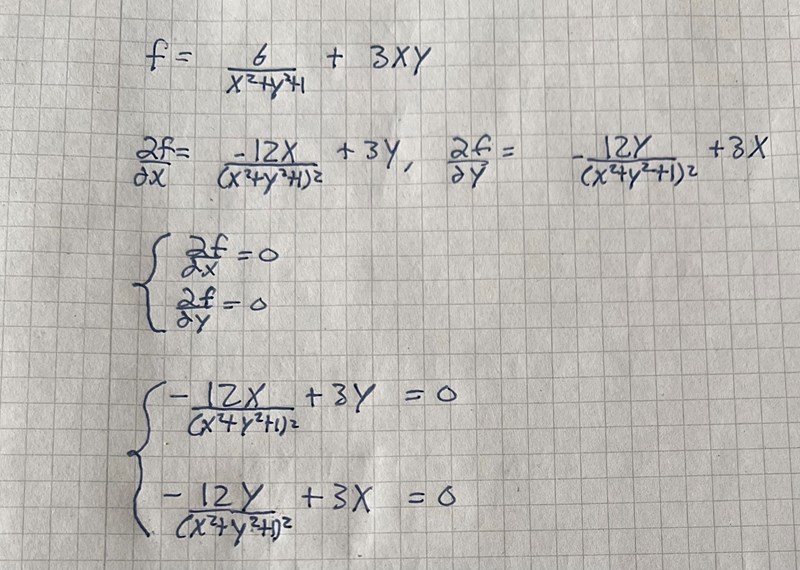 f = 6/(x²+y²+1) + 3xy
∂f/∂x = -12x/(x²+y²+1)² + 3y, ∂f/∂y = -12y/(x²+y²+1)² + 3x
{ ∂f/∂x = 0
∂f/∂y = 0
{ -12x/(x²+y²+1)² + 3y = 0
-12y/(x²+y²+1)² + 3x = 0